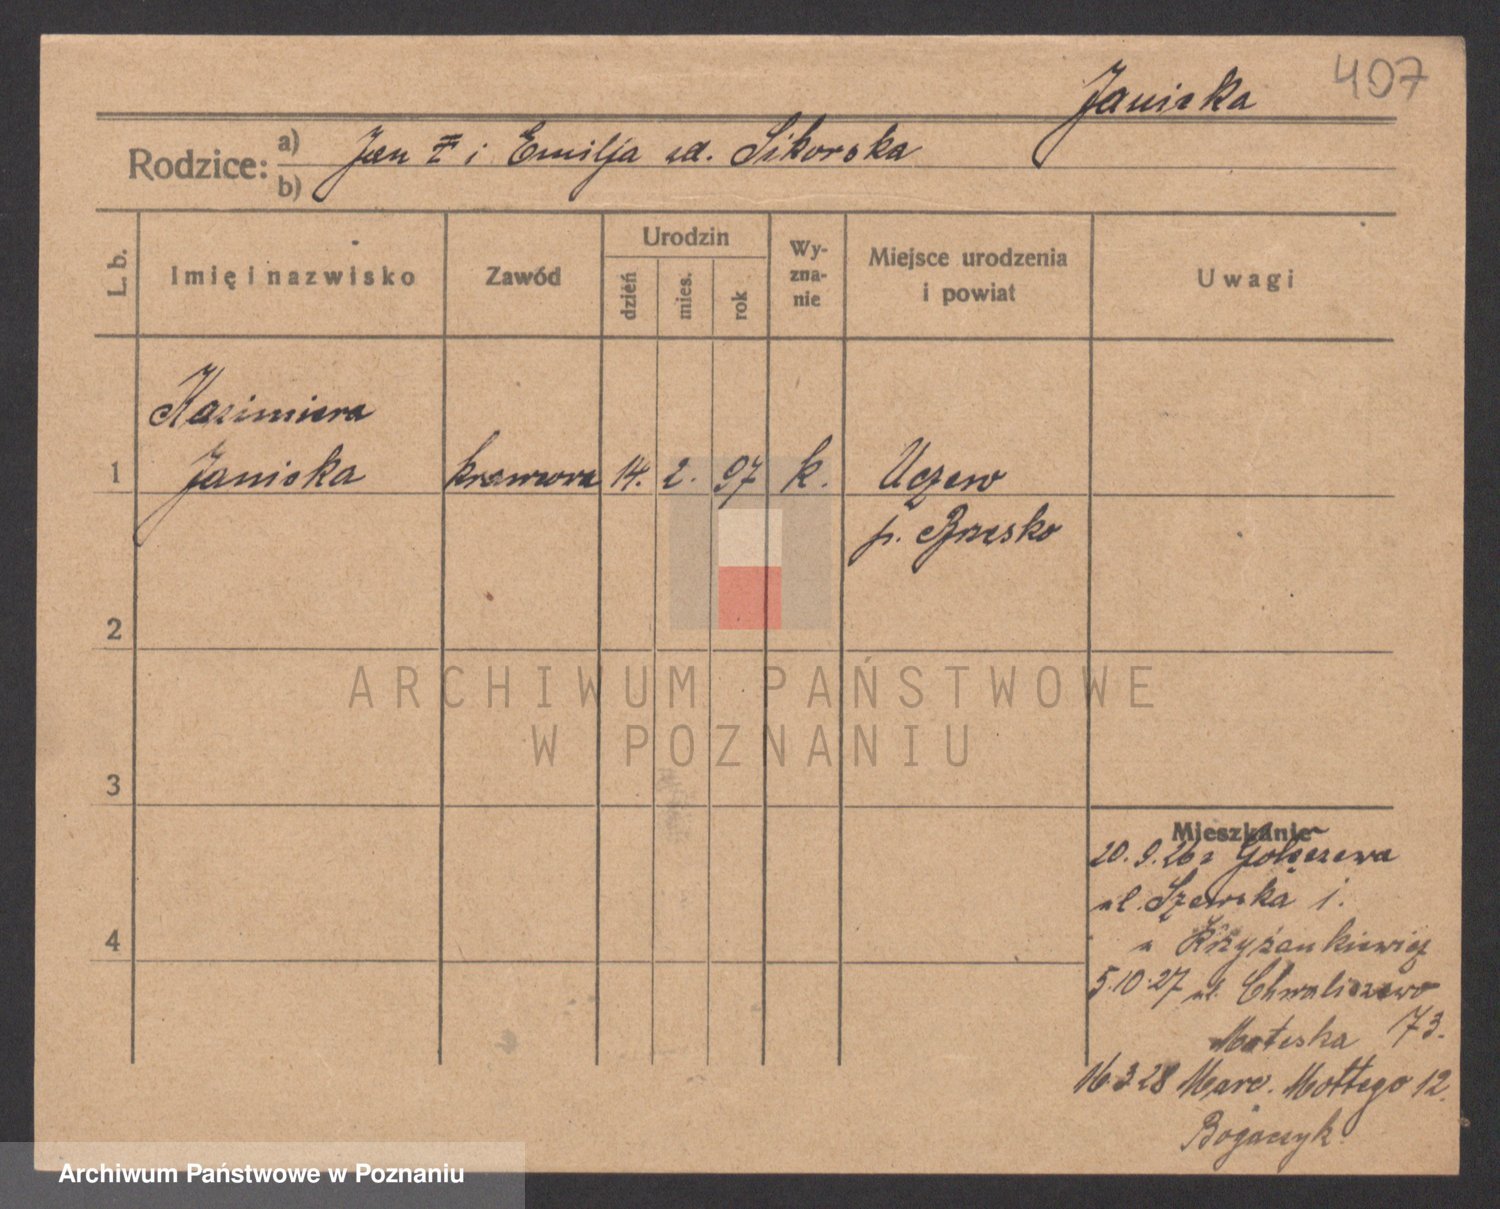 407
Janicka
Rodzice:
a) Jan I i Emilja zd. Sikorska
b)
L. b.
Imię i nazwisko
Zawód
Urodzin
dzień
mies.
rok
Wy-
zna-
nie
Miejsce urodzenia
i powiat
Uwagi
Kazimiera
1 Janicka krawcowa 14. 2. 97 k. Uczew
p. Brzesko
2
ARCHIWUM PAŃSTWOWE
W POZNANIU
3
Mieszkanie
20.9.26 z Golęczewa
ul. Szewska 1.
u Krzyżankiewicz
4
5.10.27 ul. Chwaliszewo
73.
16.3.28 Marc. Mottego 12.
Bogaczyk
Archiwum Państwowe w Poznaniu